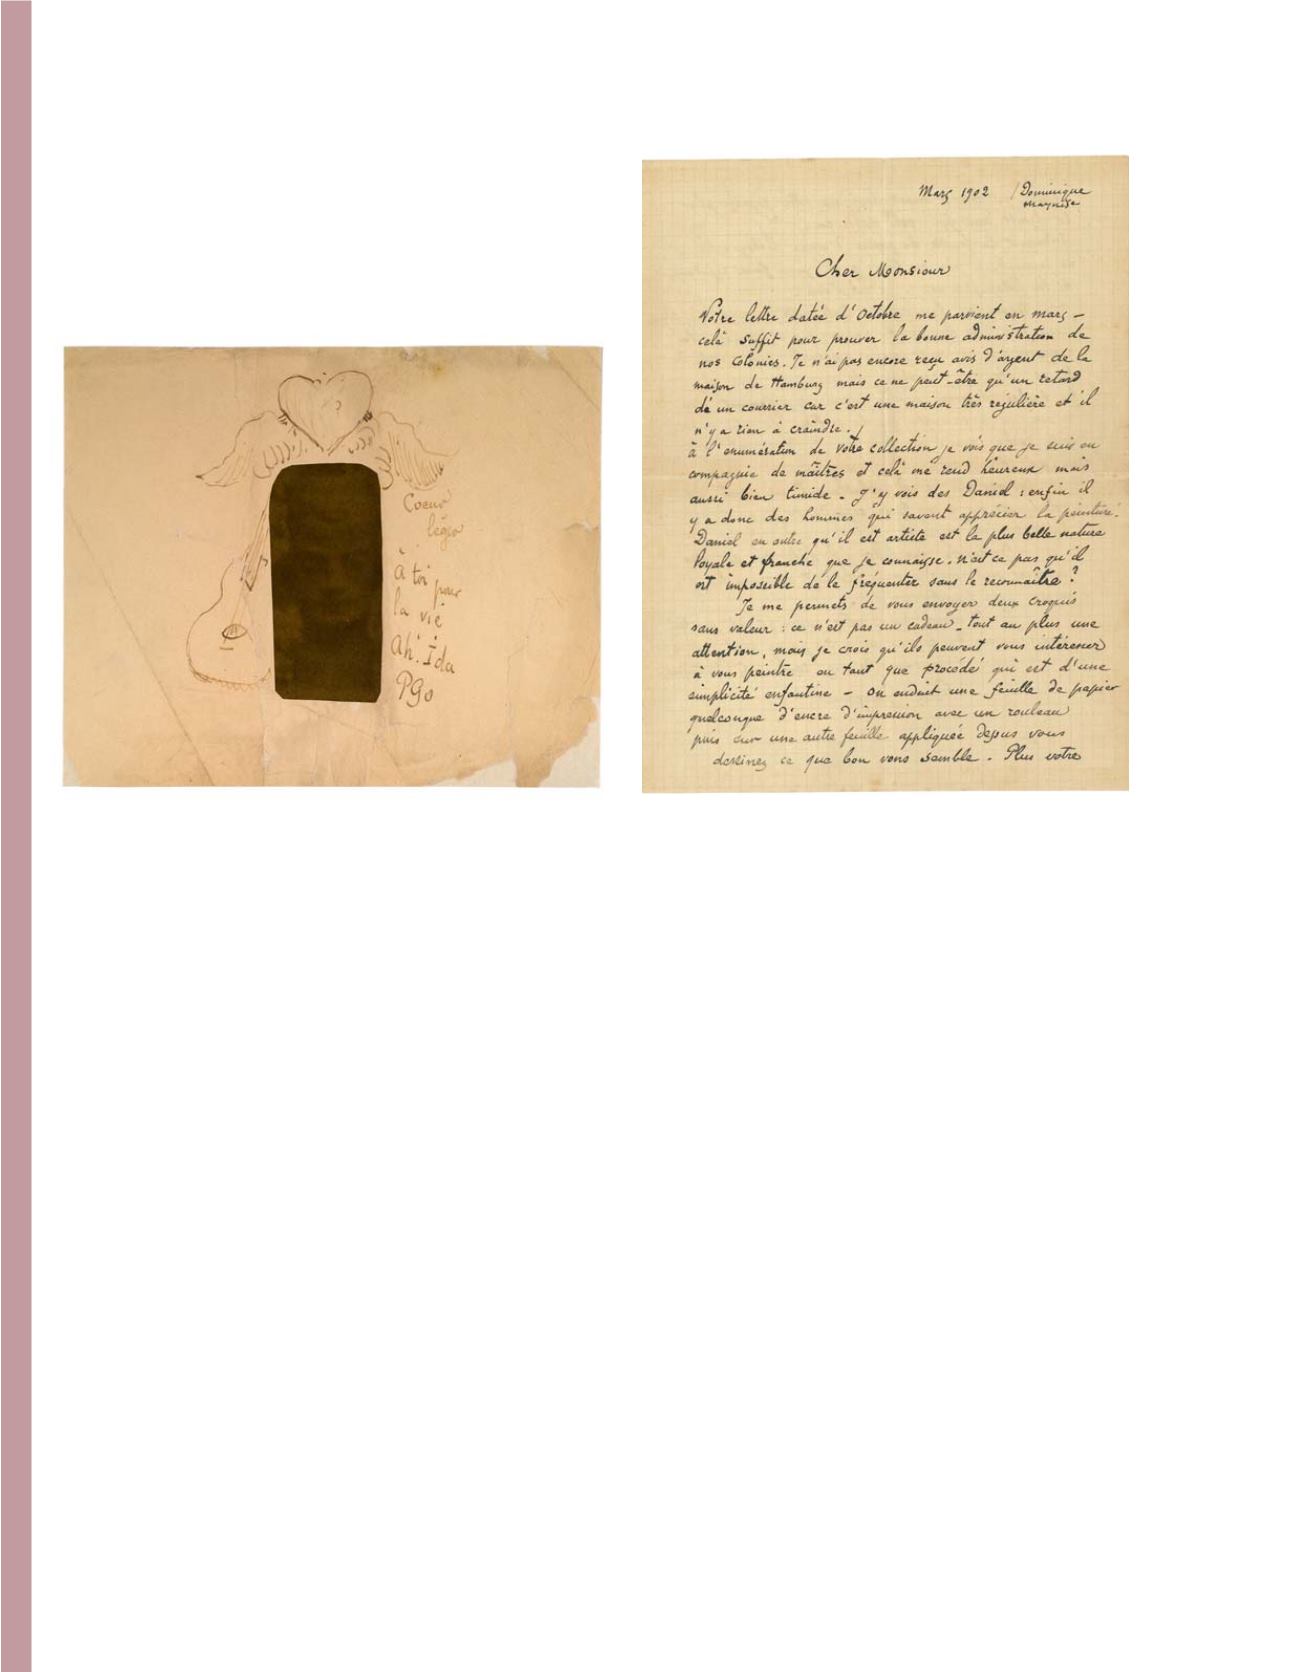 Coeur
léger
à toi pour
la vie
Ah! Ida
PGo
Mars 1902 / Dominique
Marquise
Cher Monsieur
Votre lettre datée d'Octobre me parvient en mars –
celà suffit pour prouver la bonne administration de
nos Colonies. Je n'ai pas encore reçu avis d'argent de la
maison de Hamburg mais ce ne peut-être qu'un retard
de un courrier car c'est une maison très régulière et il
n'y a rien à craindre. /
à l'enumération de votre collection je vois que je suis en
compagnie de maîtres et celà me rend heureux mais
aussi bien timide – J'y vois des Daniel : enfin il
y a donc des hommes qui savent apprécier la peinture.
Daniel en outre qu'il est artiste est la plus belle nature
loyale et franche que je connaisse. N'est ce pas qu'il
est impossible de le fréquenter sans le reconnaître ?
Je me permets de vous envoyer deux croquis
sans valeur : ce n'est pas un cadeau – tout au plus une
attention, mais je crois qu'ils peuvent vous intéresser
à vous peintre en tant que procédé qui est d'une
simplicité enfantine – on enduit une feuille de papier
quelconque d'encre d'impression avec un rouleau
puis sur une autre feuille appliquée dessus vous
dessinez ce que bon vous semble. Plus votre